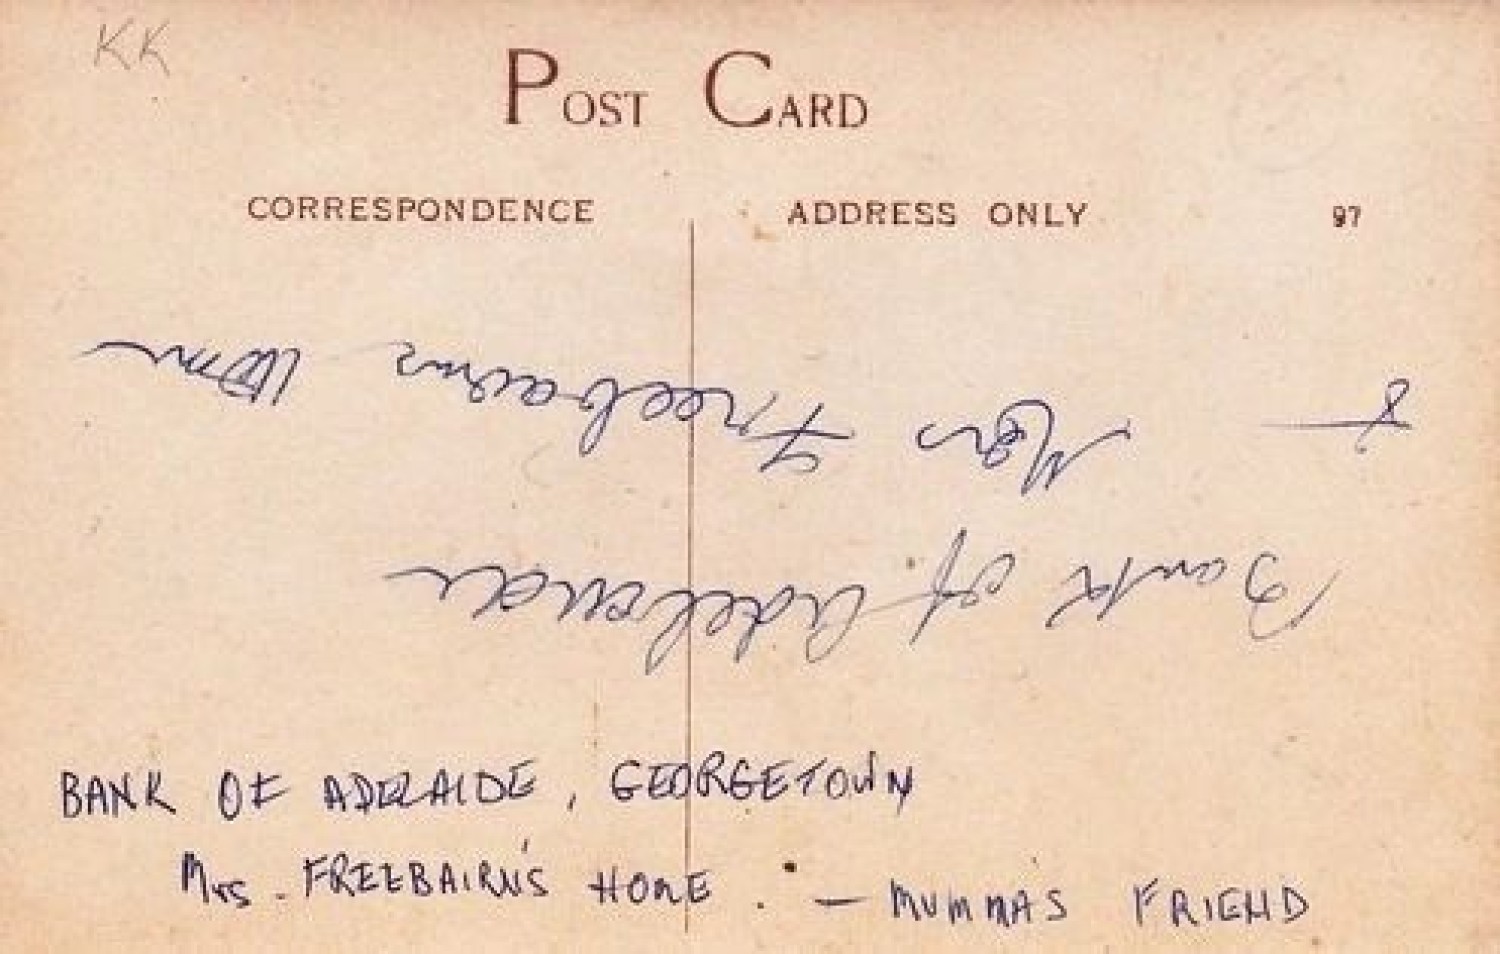 KK
POST CARD
CORRESPONDENCE
ADDRESS ONLY
97
Bank of Adelaide
& Mrs Freebairns
BANK OF ADELAIDE, GEORGETOWN
Mrs. FREEBAIRN'S HOME. — MUMMA'S FRIEND